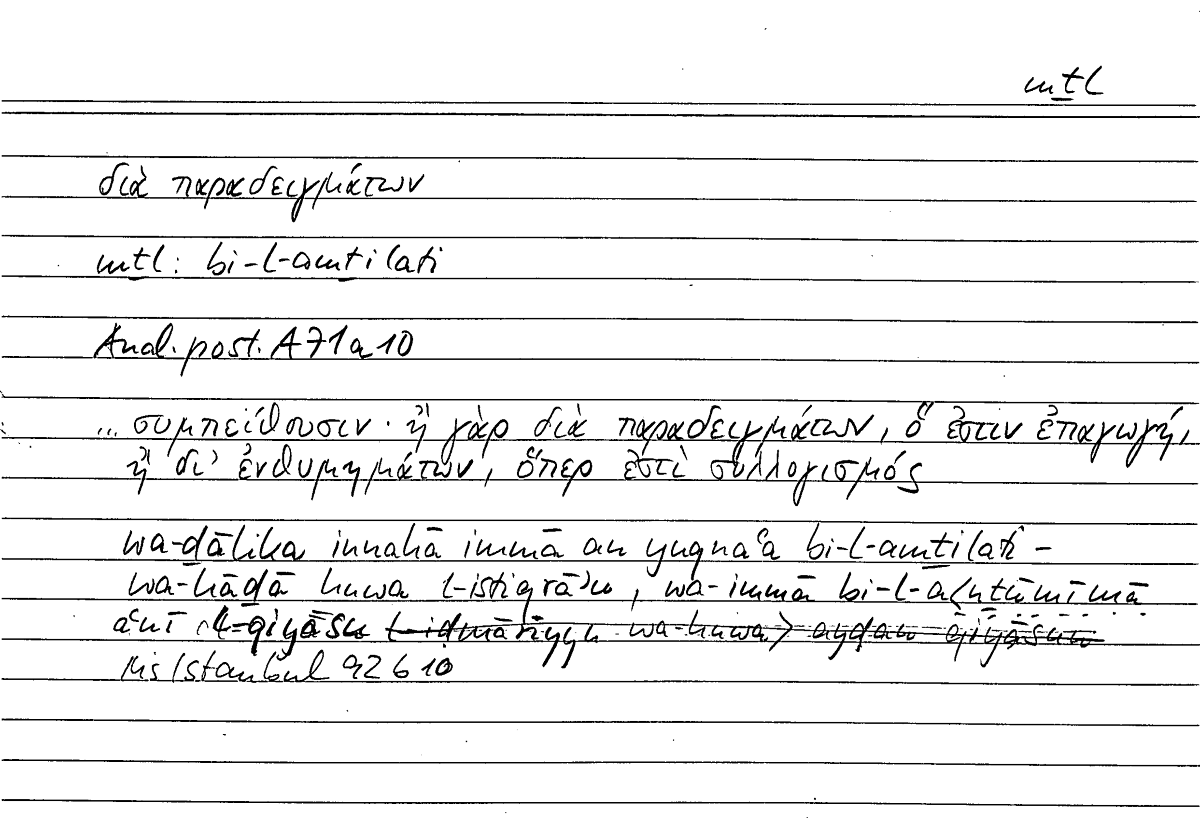 mṯl
διὰ παραδειγμάτων
mṯl: bi-l-amṯilati
Anal. post. A 71 a 10
... συμπείθουσιν · ἢ γὰρ διὰ παραδειγμάτων, ὅ ἐστιν ἐπαγωγή,
ἢ δι' ἐνθυμημάτων, ὅπερ ἐστὶ συλλογισμός
wa-ḏālika innahā immā an yuqnaʿa bi-l-amṯilati –
wa-hāḏā huwa l-istiqrāʾu, wa-immā bi-l-a〈nṯūmīmā
aʿnī l-qiyāsu l-iḍmārīyu wa-huwa〉 ayḍan qiyāsun
Ms Istanbul 92 b 10